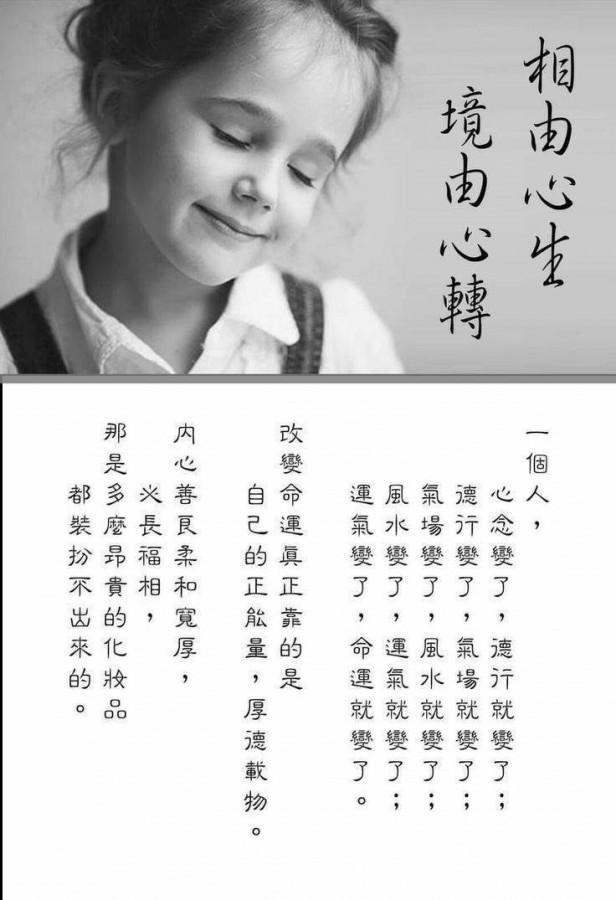 相由心生
境由心轉
一個人，
心念變了，德行就變了；
德行變了，氣場就變了；
氣場變了，風水就變了；
風水變了，運氣就變了；
運氣變了，命運就變了。
改變命運真正靠的是
自己的正能量，厚德載物。
內心善良柔和寬厚，
必長福相，
那是多麼昂貴的化妝品
都裝扮不出來的。